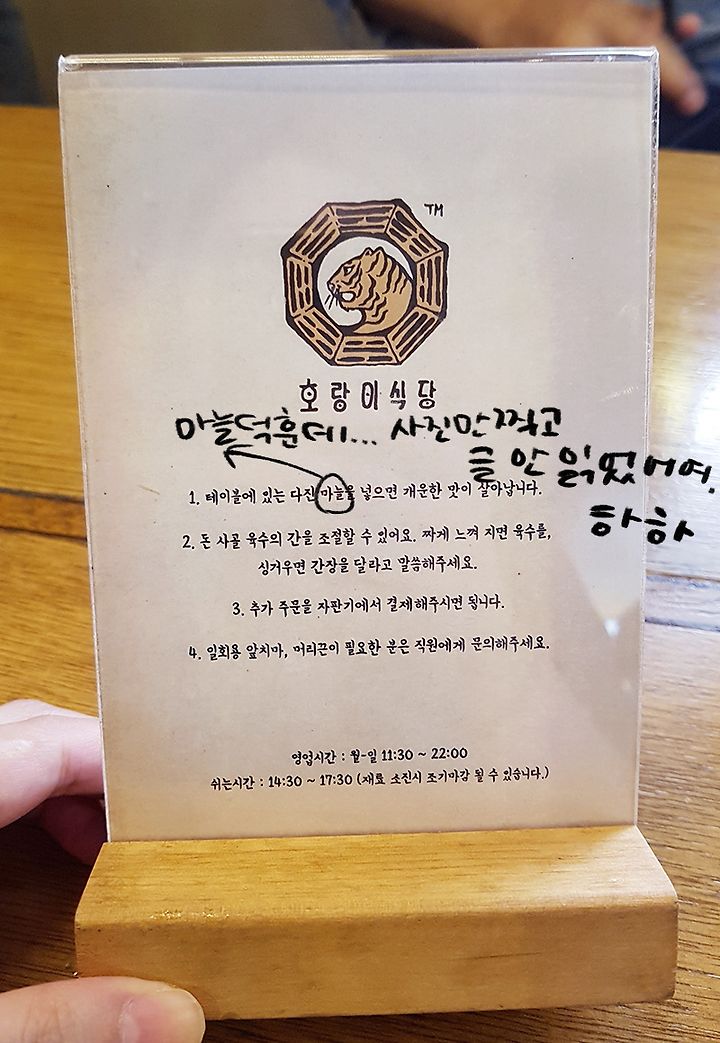 TM
호랑이식당
마늘덕훈데... 사진만 찍고
글 안 읽었어여.
하하
1. 테이블에 있는 다진 마늘을 넣으면 개운한 맛이 살아납니다.
2. 돈 사골 육수의 간을 조절할 수 있어요. 짜게 느껴 지면 육수를,
싱거우면 간장을 달라고 말씀해주세요.
3. 추가 주문은 자판기에서 결제해주시면 됩니다.
4. 일회용 앞치마, 머리끈이 필요한 분은 직원에게 문의해주세요.
영업시간 : 월-일 11:30 ~ 22:00
쉬는시간 : 14:30 ~ 17:30 (재료 소진시 조기마감 될 수 있습니다.)